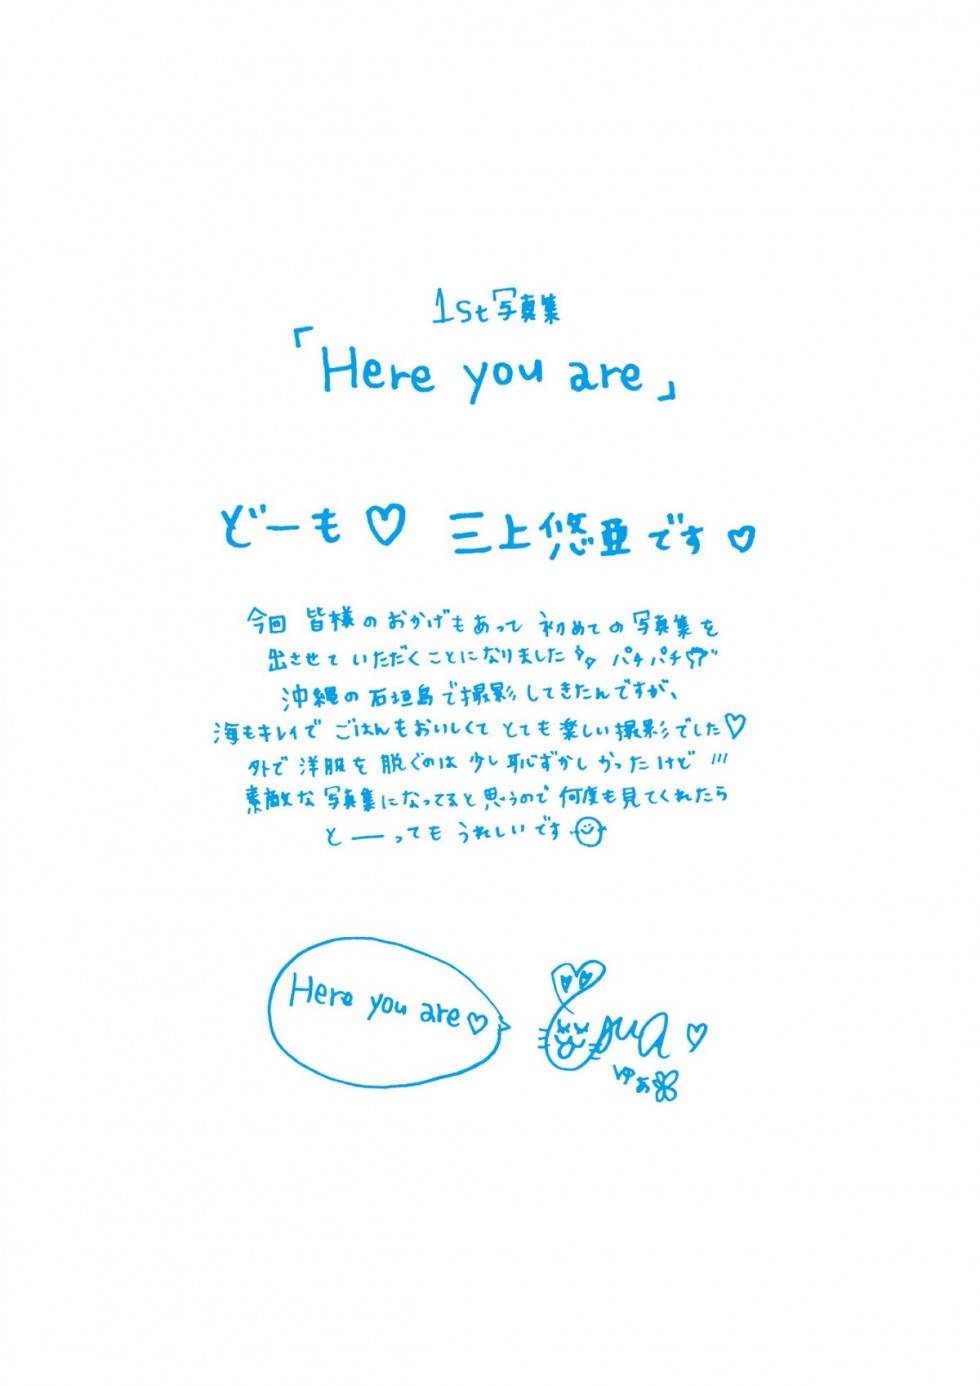 1st写真集
「Here you are」
どーも♡ 三上悠亜です♡
今回 皆様のおかげもあって 初めての写真集を
出させていただくことになりました パチパチ
沖縄の石垣島で撮影してきたんですが、
海もキレイで ごはんもおいしくて とても楽しい撮影でした♡
外で 洋服を 脱ぐのは 少し恥ずかしかったけど
素敵な写真集になってると思うので 何度も見てくれたら
と――っても うれしいです
Here you are♡
yua♡
ゆあ